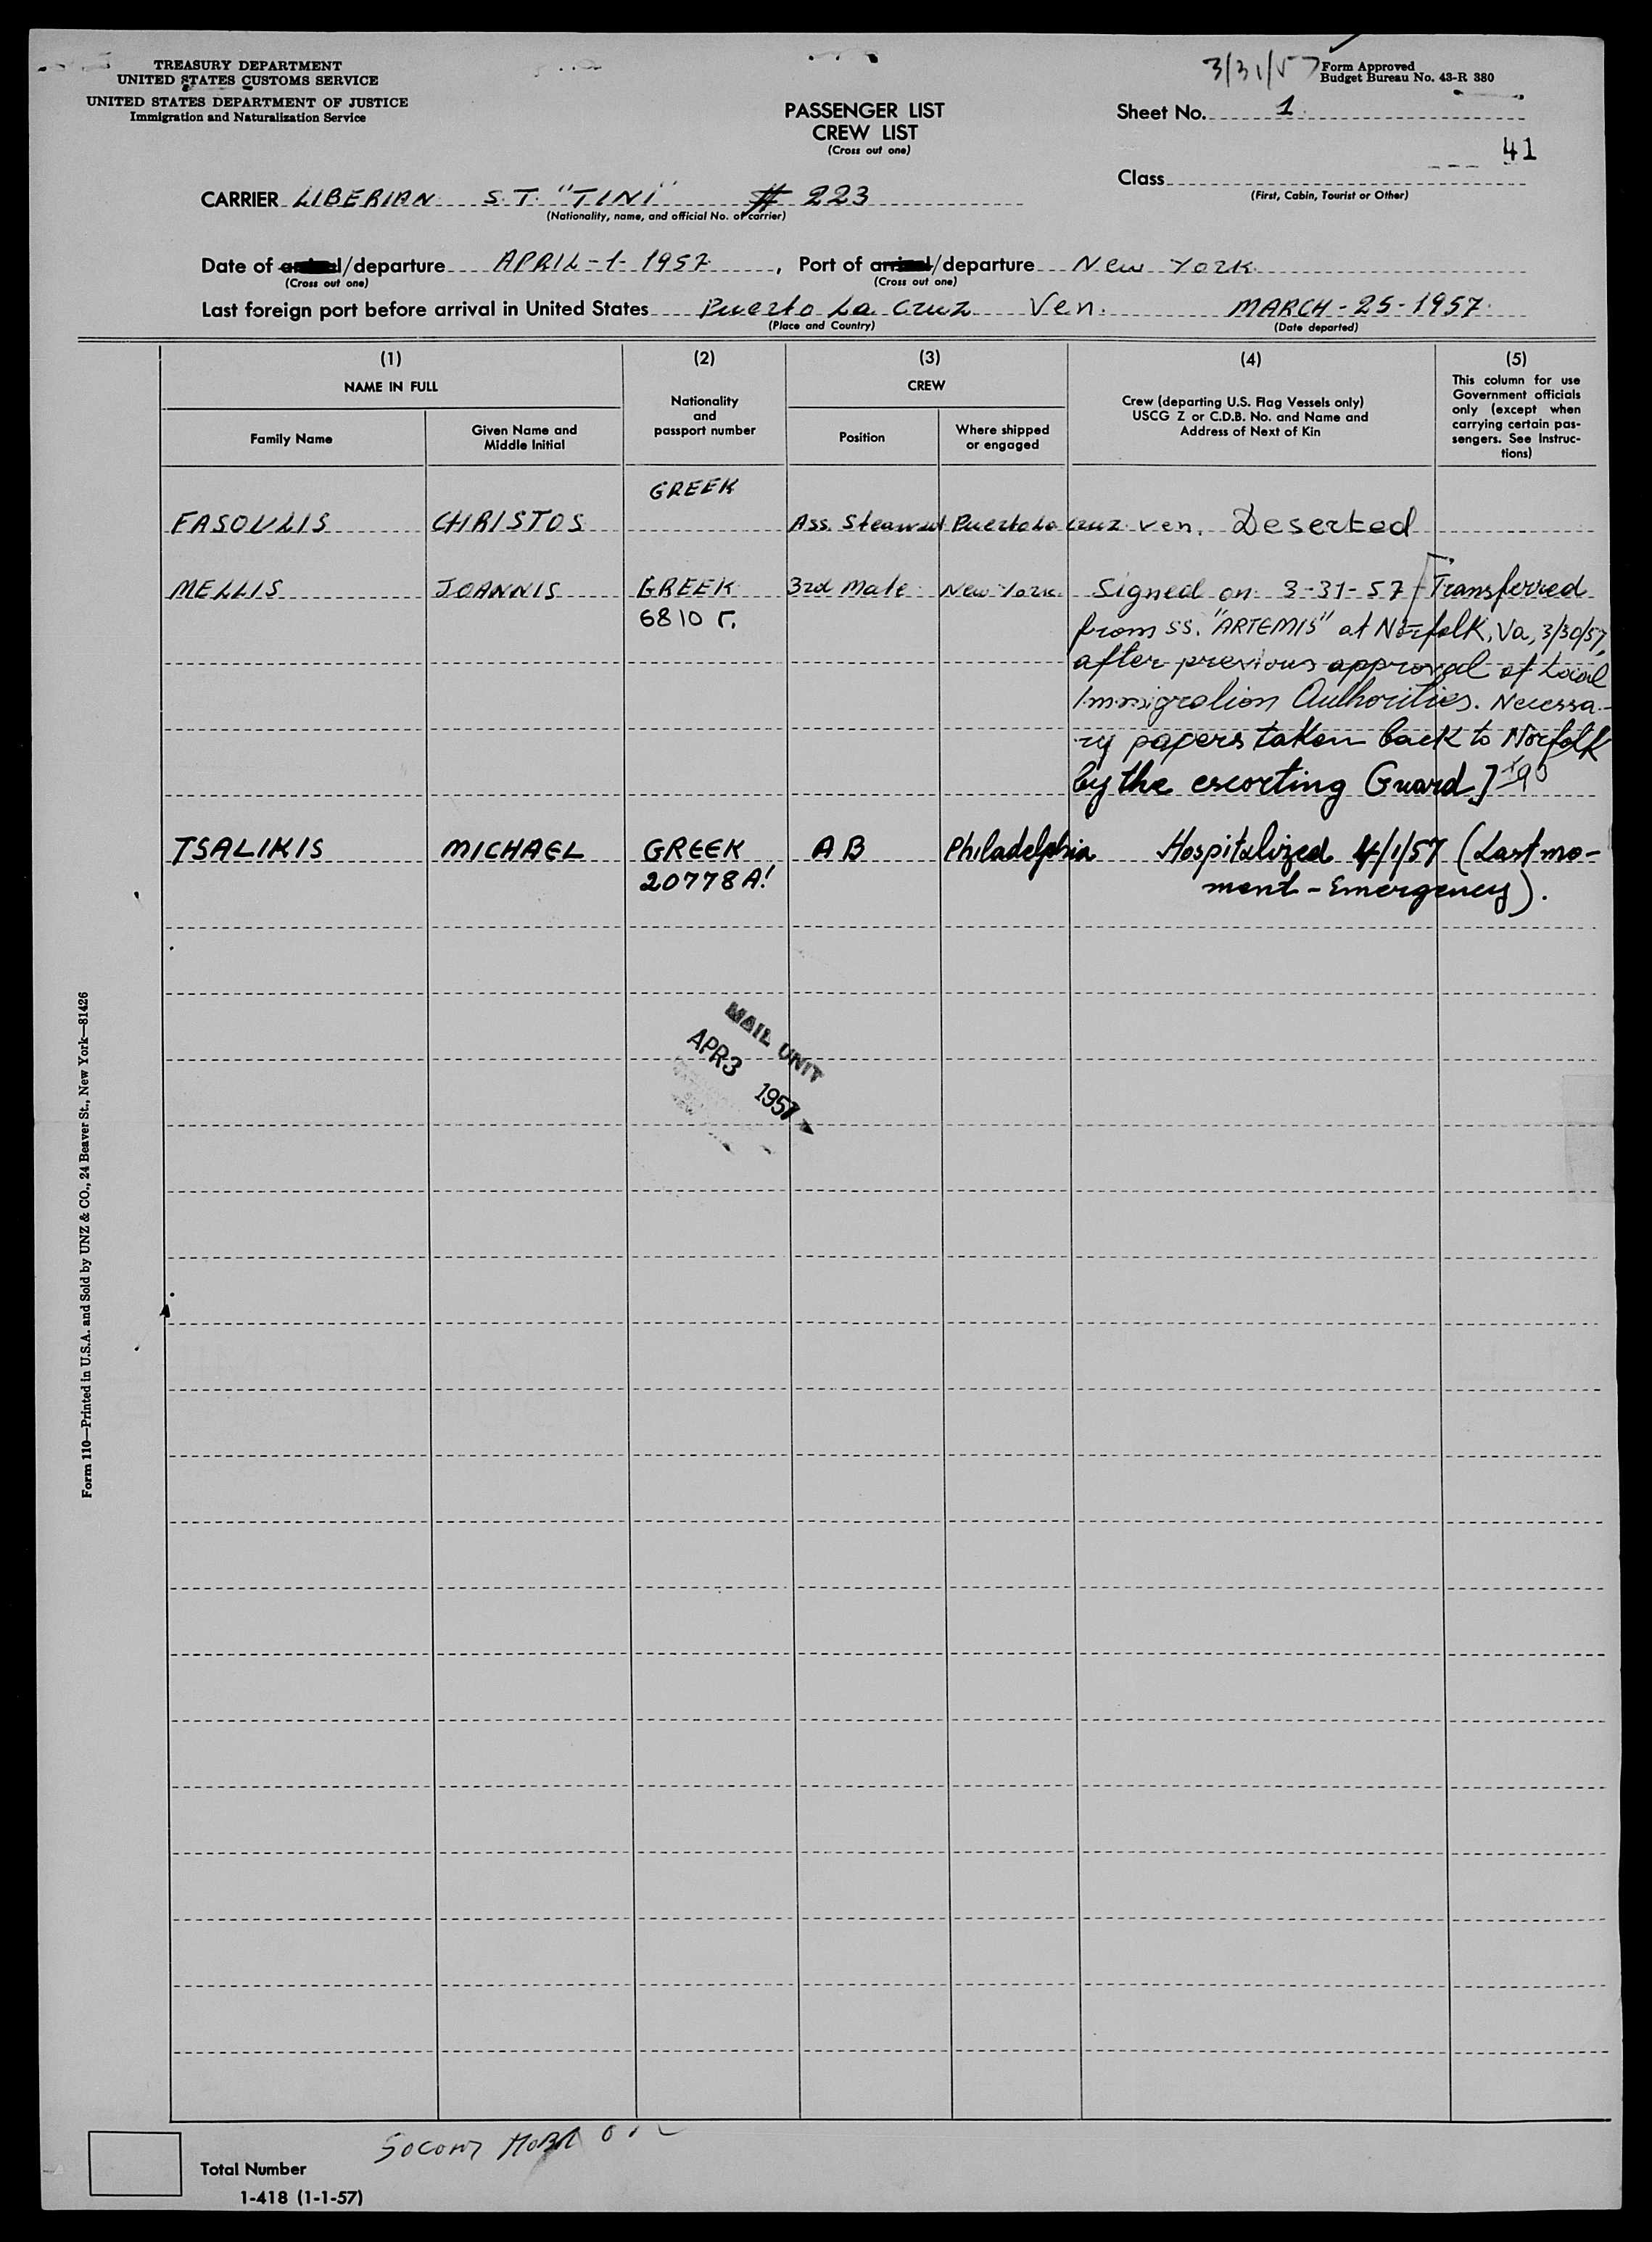 TREASURY DEPARTMENT
UNITED STATES CUSTOMS SERVICE
UNITED STATES DEPARTMENT OF JUSTICE
Immigration and Naturalization Service
3/31/57
Form Approved
Budget Bureau No. 43-R 380
PASSENGER LIST
CREW LIST
(Cross out one)
Sheet No. 1
41
Class
(First, Cabin, Tourist or Other)
CARRIER LIBERIAN S.T. "TINI" # 223
(Nationality, name, and official No. of carrier)
Date of arrival/departure APRIL-1-1957, Port of arrival/departure New York
(Cross out one) (Cross out one)
Last foreign port before arrival in United States Puerto La Cruz Ven. MARCH-25-1957
(Place and Country) (Date departed)
(1) (2) (3) (4) (5)
NAME IN FULL
Family Name
Given Name and
Middle Initial
Nationality
and
passport number
CREW
Position
Where shipped
or engaged
Crew (departing U.S. Flag Vessels only)
USCG Z or C.D.B. No. and Name and
Address of Next of Kin
This column for use
Government officials
only (except when
carrying certain pas-
sengers. See Instruc-
tions)
GREEK
FASOULIS CHRISTOS Ass. Steward Puerto La Cruz Ven. Deserted
MELLIS JOANNIS GREEK 3rd Mate New York Signed on 3-31-57 [Transferred
6810 Γ. from SS. "ARTEMIS" at Norfolk, Va, 3/30/57,
after previous approval of Local
Immigration Authorities. Necessa-
ry papers taken back to Norfolk
by the escorting Guard]
TSALIKIS MICHAEL GREEK AB Philadelphia Hospitalized 4/1/57 (Last mo-
20778A! ment - Emergency).
MAIL UNIT
APR 3 1957
Form 110—Printed in U.S.A. and Sold by UNZ & CO., 24 Beaver St., New York—81426
Socony Mobil Oil
Total Number
1-418 (1-1-57)